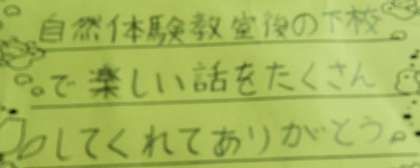 自然体験教室後の下校
で楽しい話をたくさん
してくれてありがとう。